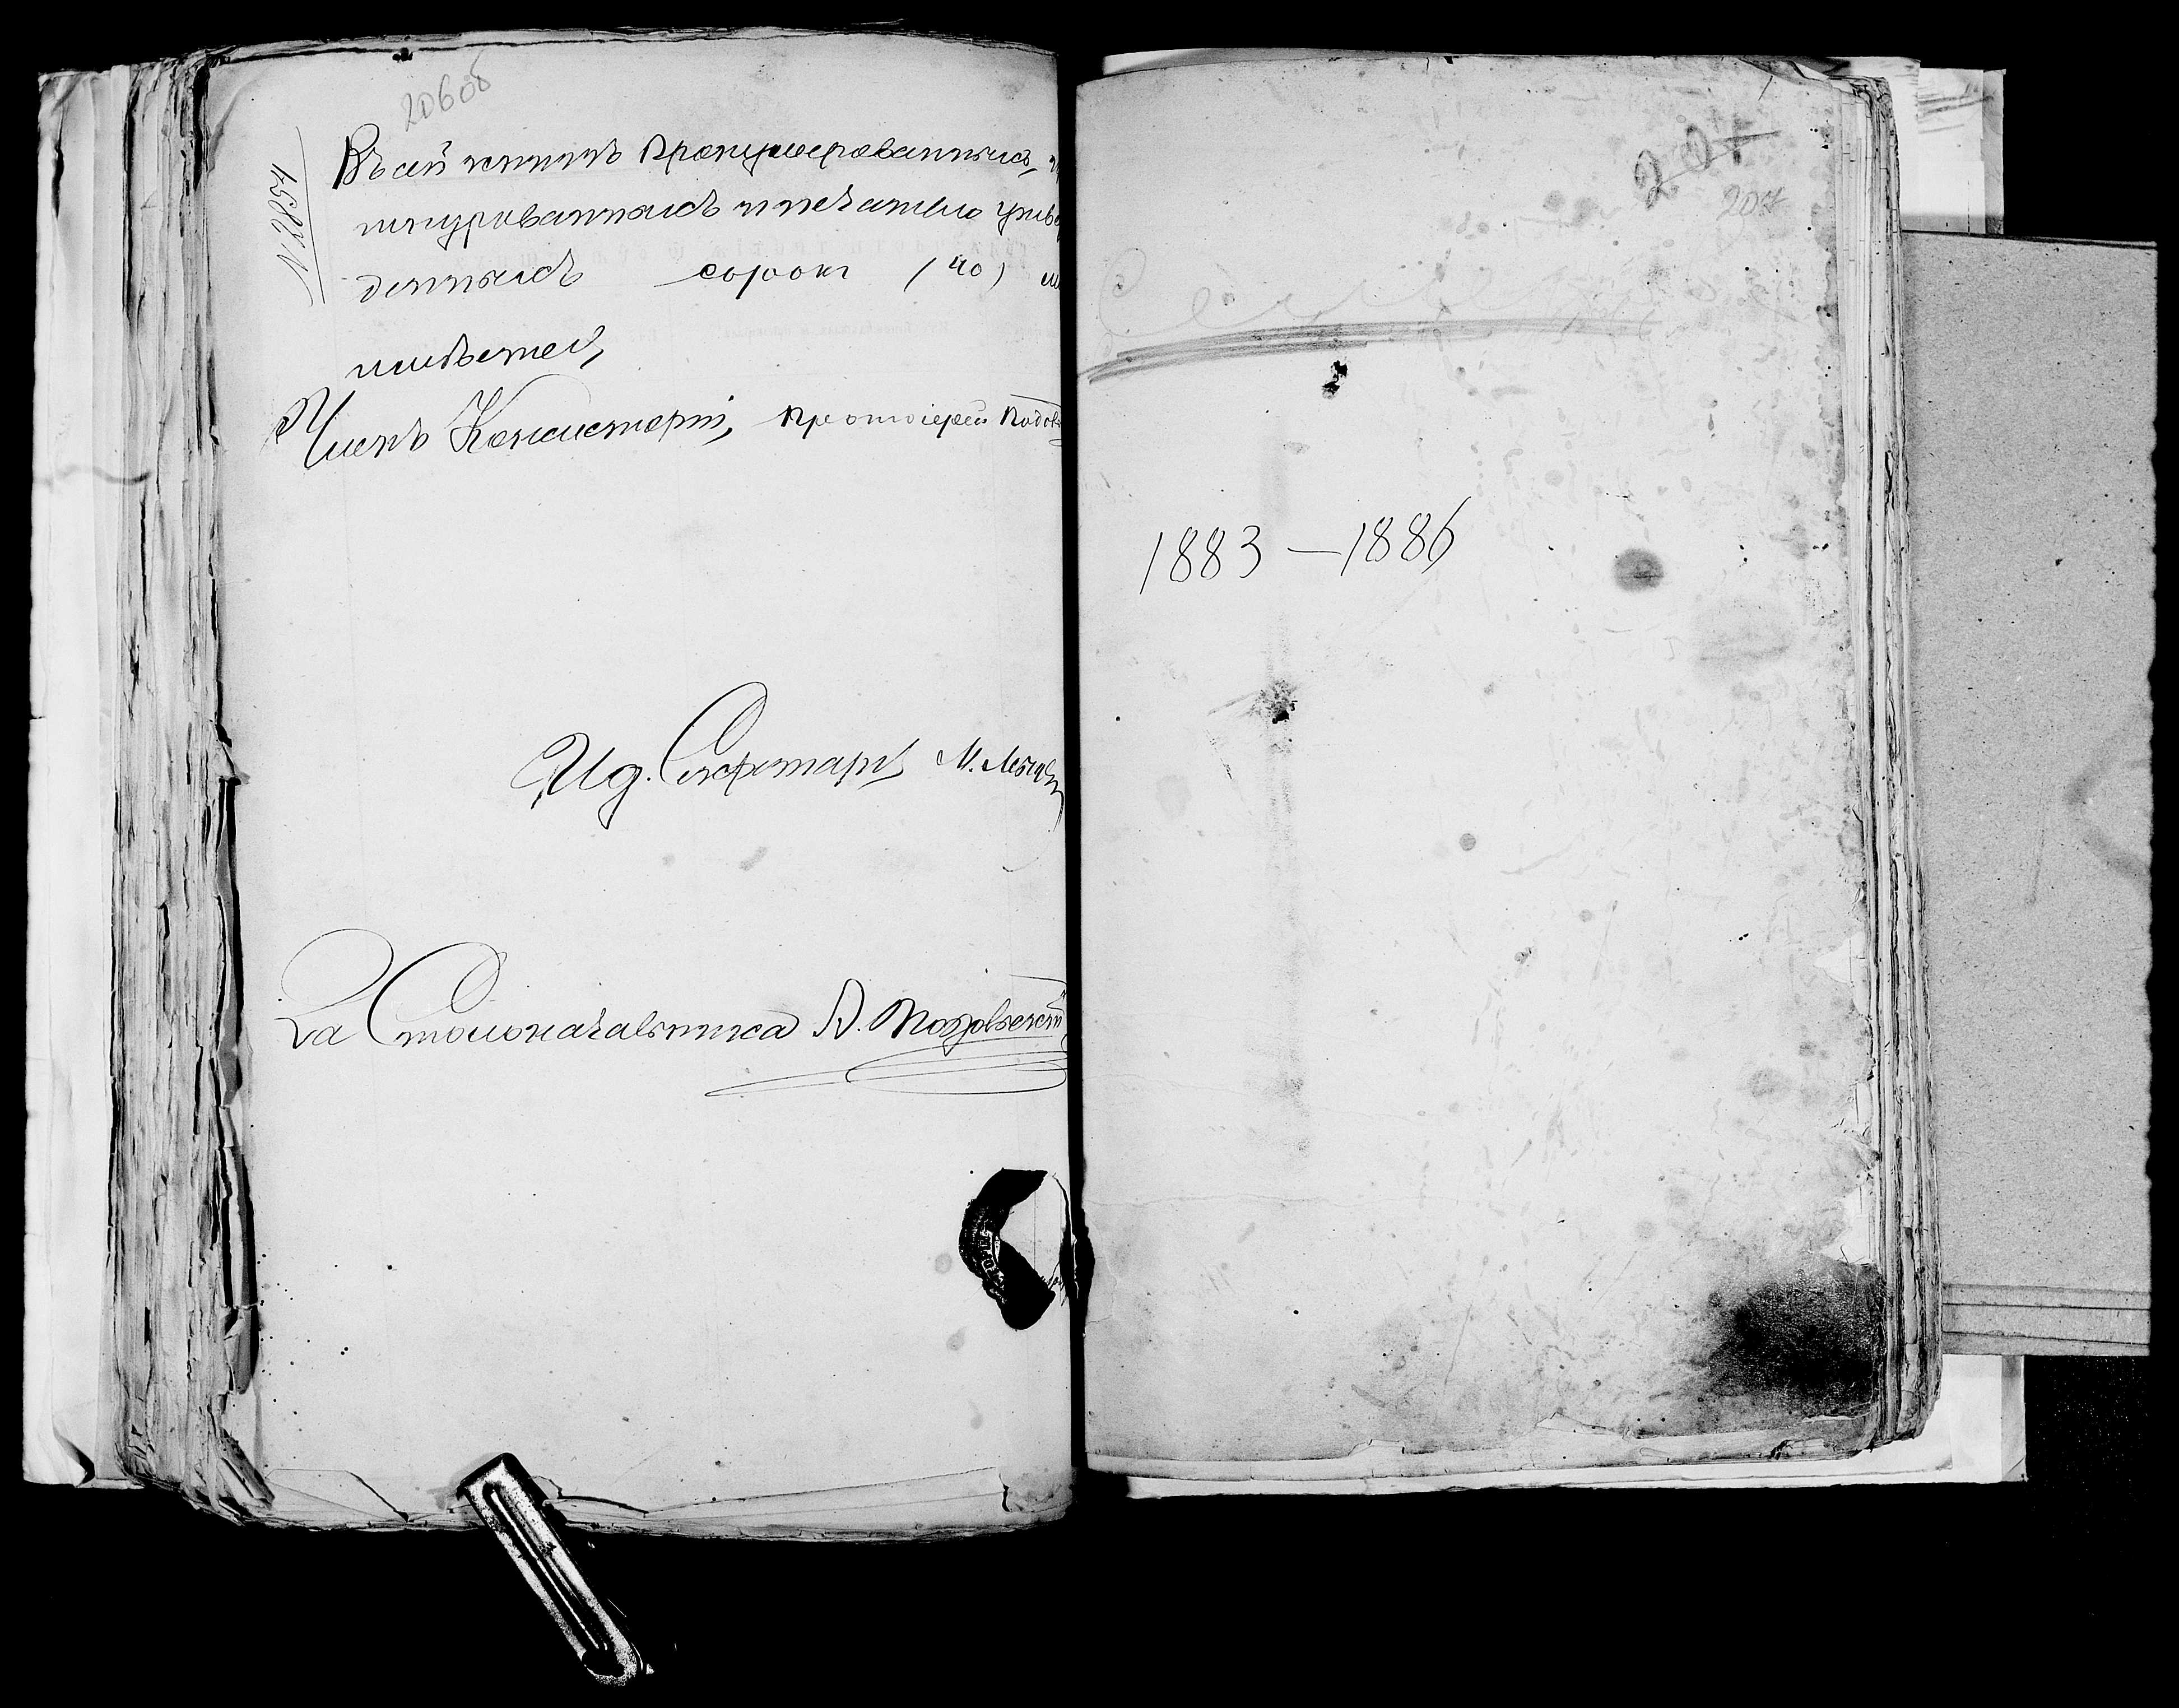 206об
№ 8854
Въ сей книгѣ пронумерованныхъ,
шнурованныхъ и печатью утвер
жденныхъ сорокъ (40)
имѣется,
Членъ Консисторіи, Протоіерей
И д. Секретаря М.
За Столоначальника А.
207
207
1883 — 1886